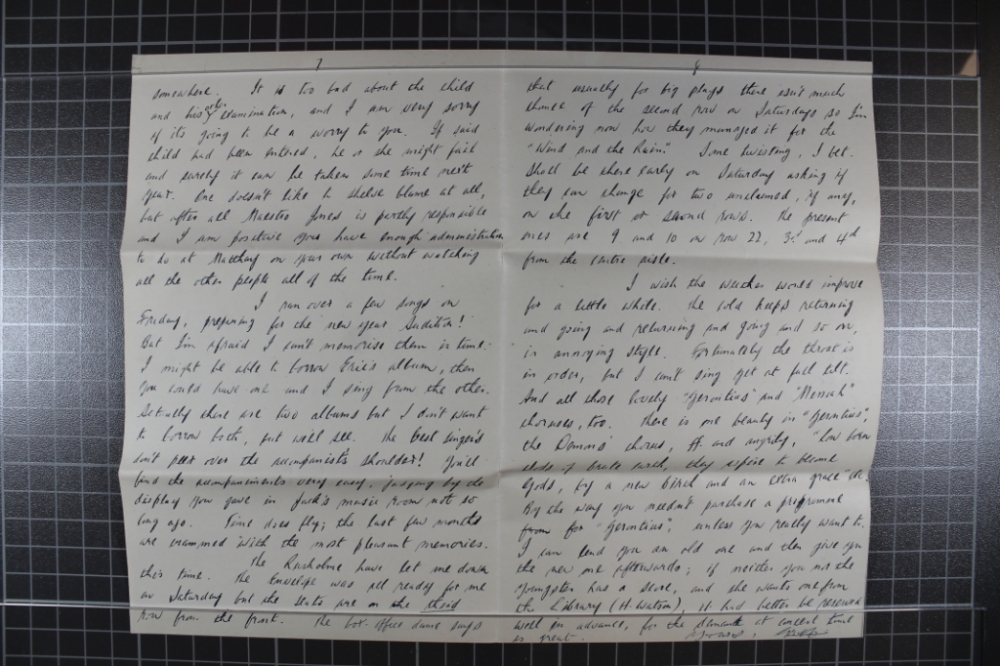 7
somewhere. It is too bad about the child
and his examination, and I am very sorry
if it's going to be a worry to you. If said
child had been entered, he or she might fail
and surely it can be taken some time next
year. One doesn't like to shelve blame at all,
but after all Maestro Jones is partly responsible
and I am positive you have enough administration
to do at Matthay on your own without watching
all the other people all of the time.
I ran over a few songs on
Friday, preparing for the new year Audition!
But I'm afraid I can't memorise them in time.
I might be able to borrow Eric's album, then
you could have one and I sing from the other.
Actually there are two albums but I don't want
to borrow both, but will see. The best singers
don't peer over the accompanist's shoulder! You'll
find the accompaniments very easy, judging by the
display you gave in Jack's music room not so
long ago. Time does fly; the last few months
are crammed with the most pleasant memories.
The Rusholme have let me down
this time. The Envelope was all ready for me
on Saturday but the seats are on the third
row from the front. The box-office dame says
8
that usually for big plays there isn't much
choice of the second row on Saturdays so I'm
wondering now how they managed it for the
"Wind and the Rain." Some twisting, I bet.
Shall be there early on Saturday asking if
they can change for two unclaimed, if any,
on the first or second rows. The present
ones are 9 and 10 on row 22, 3rd and 4th
from the centre aisle.
I wish the weather would improve
for a little while. The cold keeps returning
and going and returning and going and so on,
in annoying style. Fortunately the throat is
in order, but I can't sing yet at full tilt.
And all those lovely "Gerontius" and "Messiah"
choruses, too. There is one beauty in "Gerontius",
the Demons' chorus, ff and angrily, "Low born
clods of brute earth, they aspire to become
Gods, by a new birth and an extra grace" etc.
By the way you needn't purchase a programme
from for "Gerontius", unless you really want to.
I can lend you an old one and then give you
the new one afterwards; if neither you nor the
youngster has a score, and she wants one from
the Library (H. Watson), it had better be reserved
well in advance, for the demand at concert time
is great.